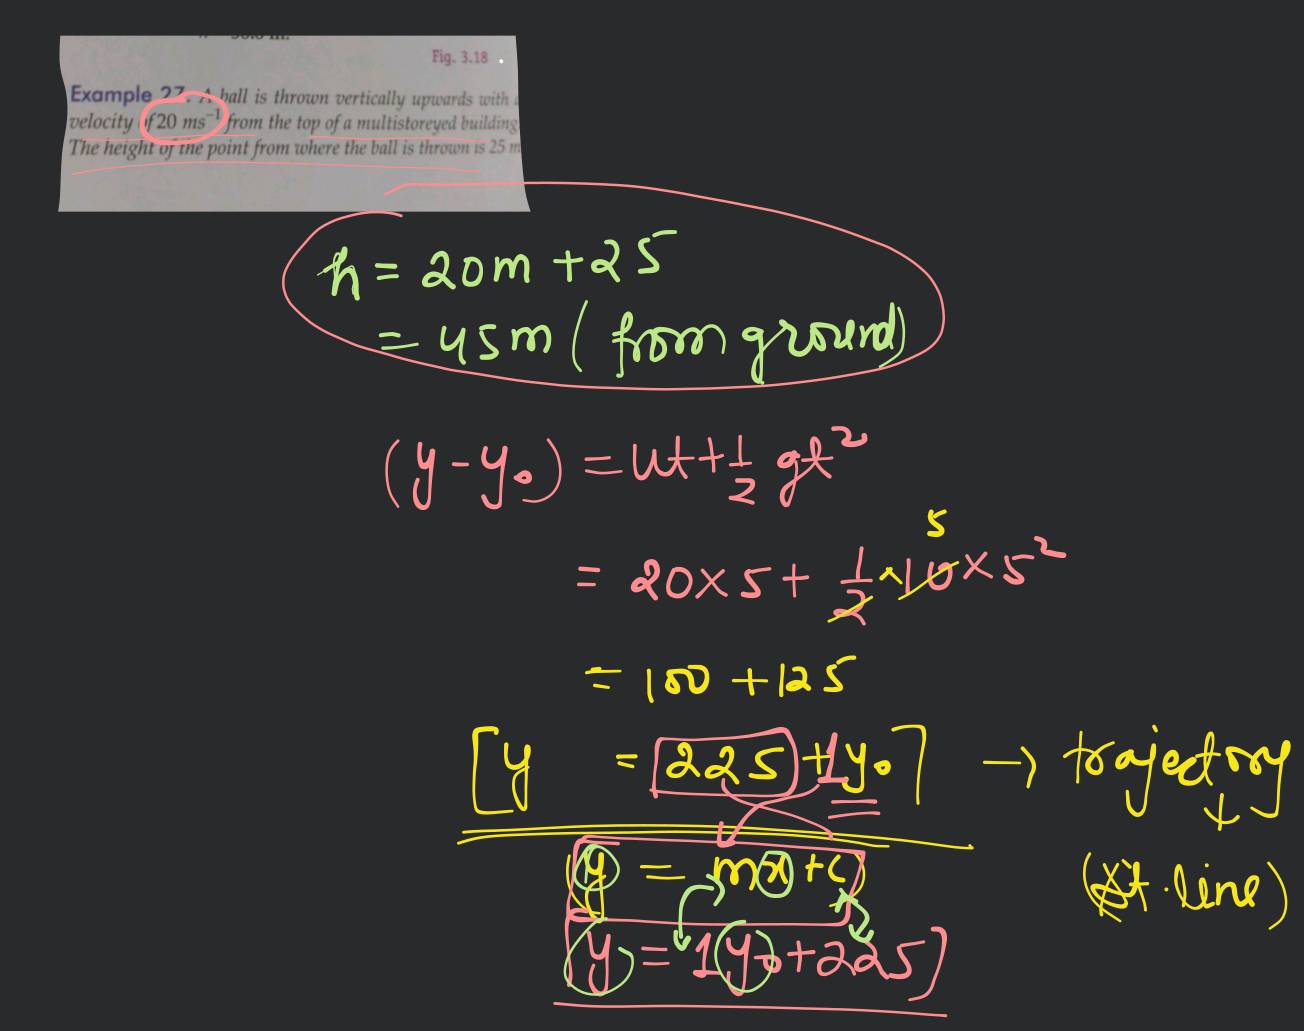 Fig. 3.18
Example 27. A ball is thrown vertically upwards with
velocity of 20 ms⁻¹ from the top of a multistoreyed building
The height of the point from where the ball is thrown is 25 m
h = 20m + 25
= 45m ( from ground)
(y - y₀) = ut + 1/2 gt²
5
= 20 × 5 + 1/2 × 10 × 5²
= 100 + 125
[y = 225 + 1y₀] → trajectory
(y = mx + c) (st. line)
[y = 1(y₀ + 225]